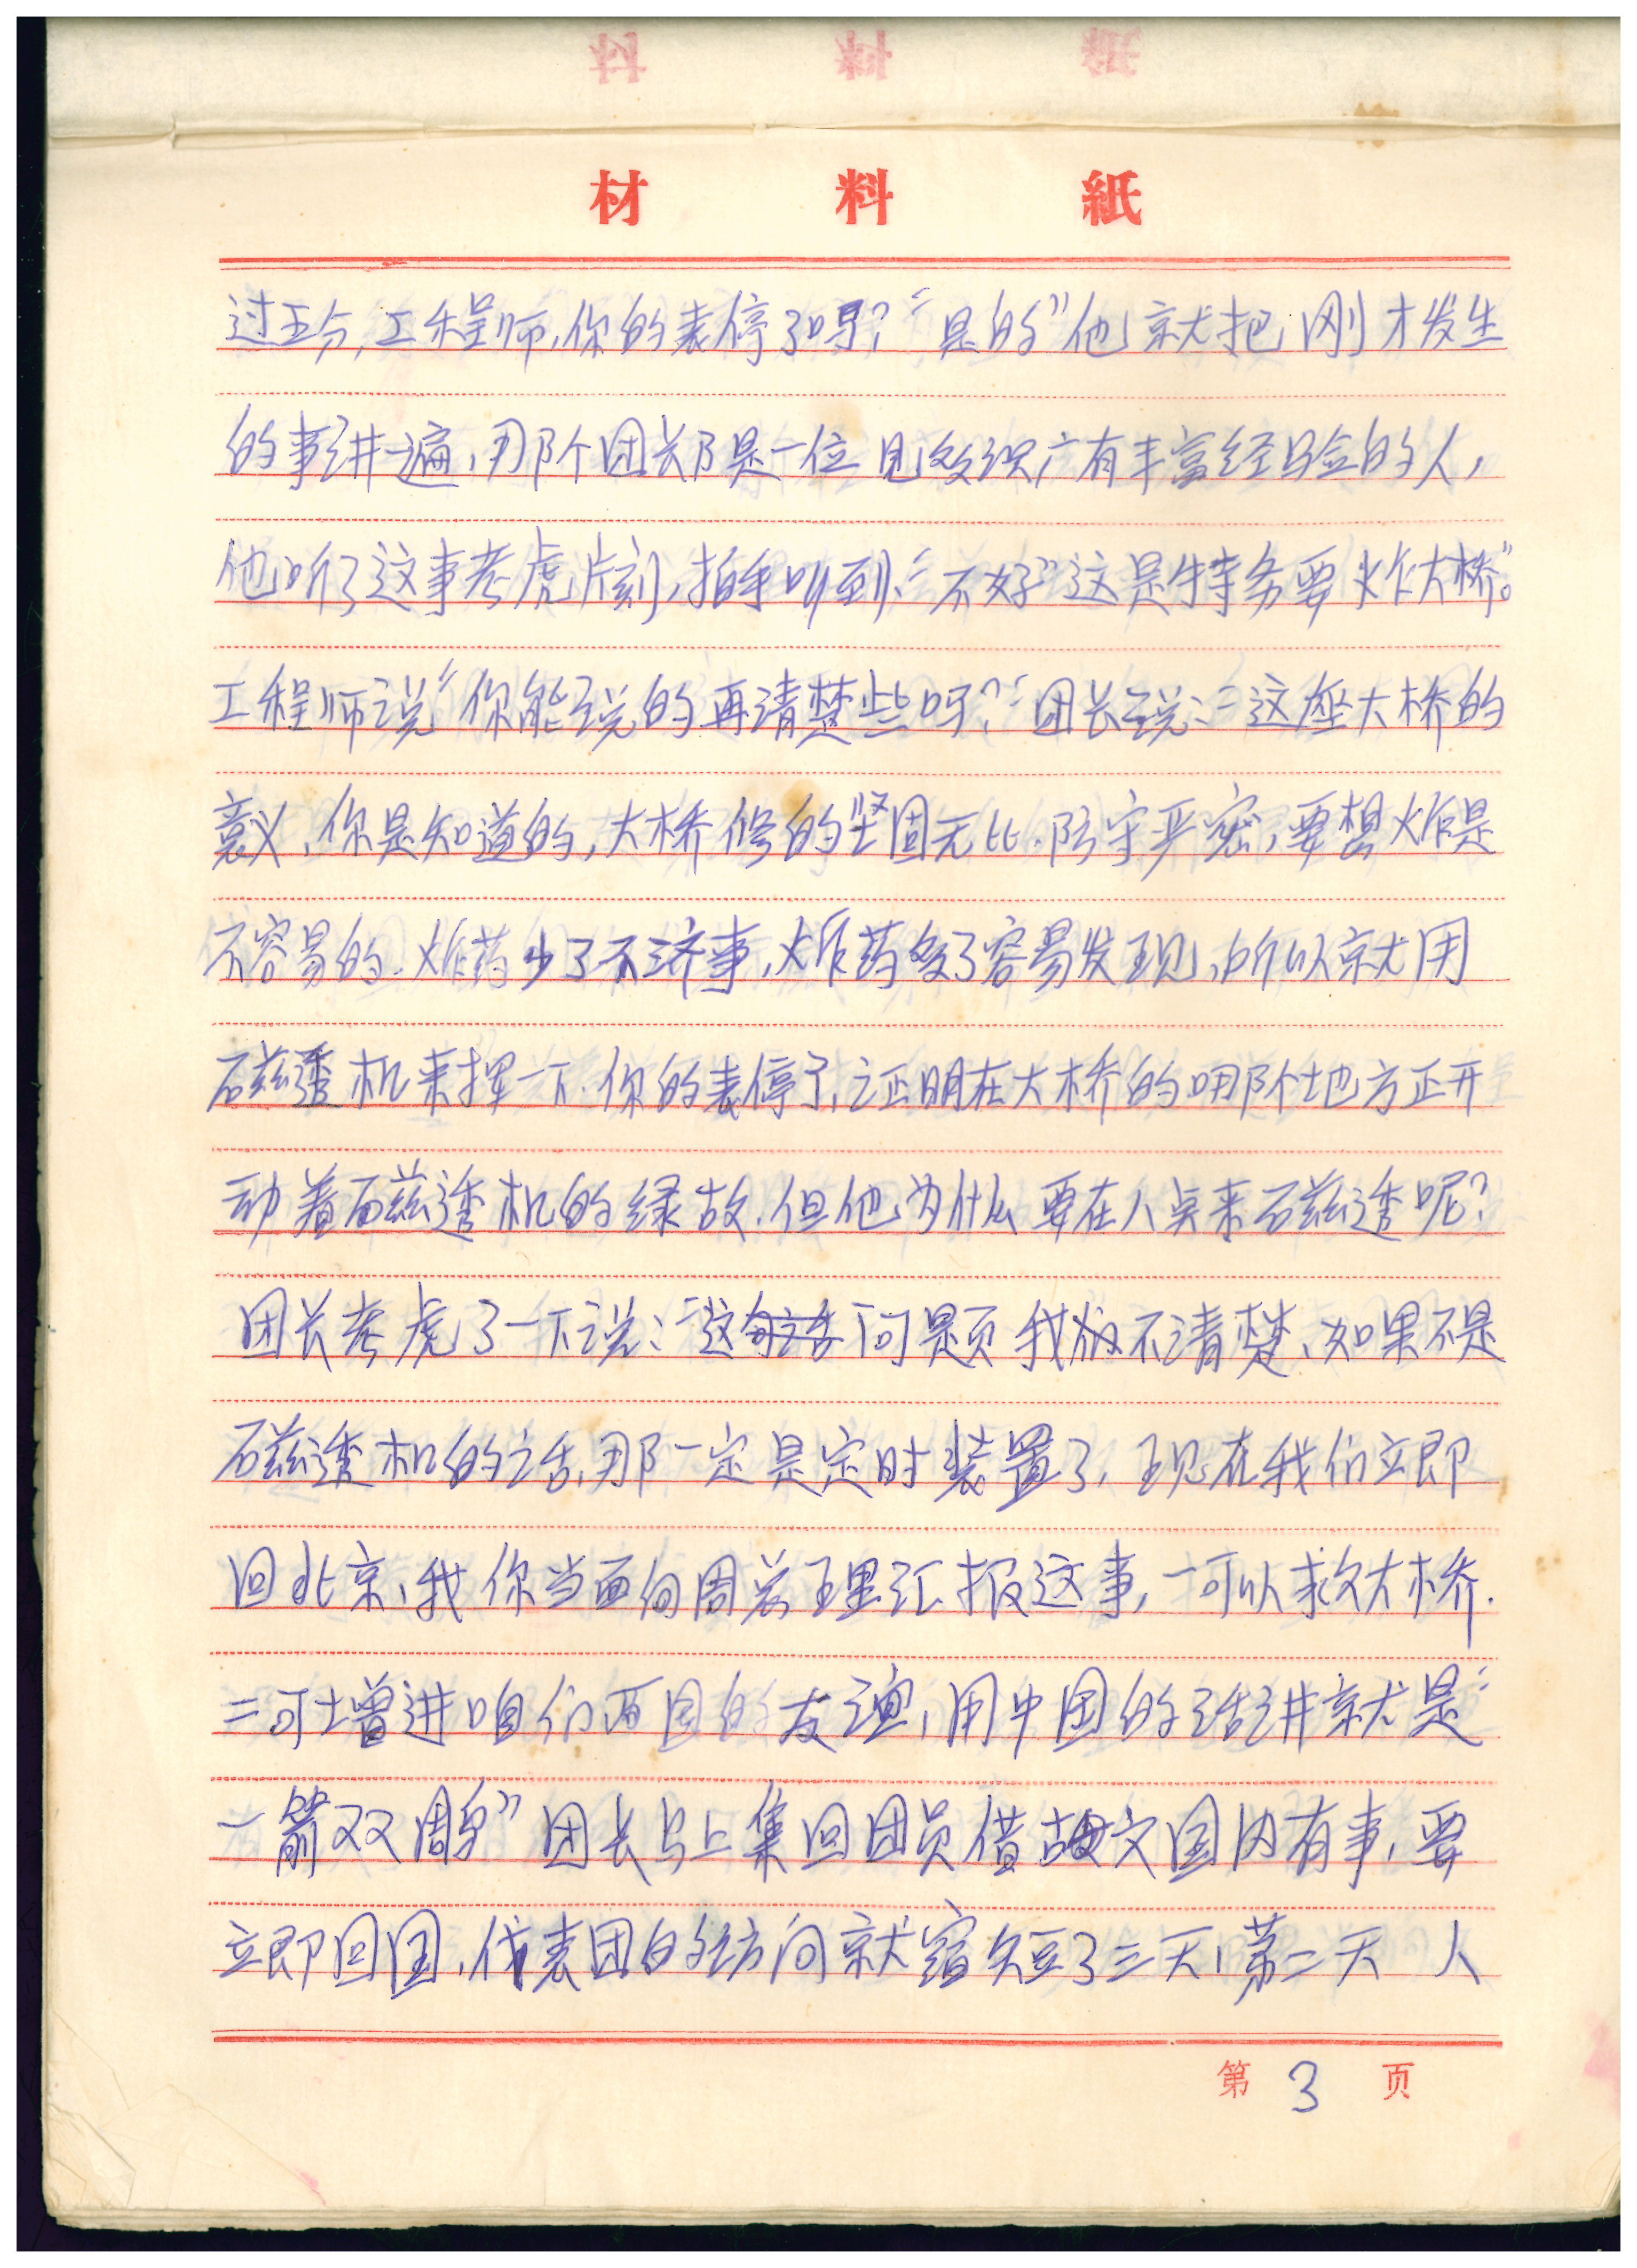 材料紙
过五分,工程师,你的表停了吗?“是的”他就把刚才发生
的事讲一遍,那个团长是一位见多识广有丰富经验的人,
他听了这事考虑片刻,拍手叫到:“不好”这是特务要炸大桥。
工程师说“你能说的再清楚些吗?”团长说:“这座大桥的
意义、你是知道的,大桥修的坚固无比.防守严密,要想炸是
不容易的.炸药少了不济事,炸药多了容易发现,所以就用
磁透机来挥一下.你的表停了,证明在大桥的哪个地方正开
动着磁透机的缘故.但他为什么要在八点来磁透呢?
团长考虑了一下说:“这问题我不清楚、如果不是
磁透机的话,那一定是定时装置了,现在我们立即
回北京、我你当面向周总理汇报这事,一可以救大桥.
二可增进咱们两国的友谊,用中国的话讲就是“
一箭双周鸟”团长马上集回团员借故国内有事,要
立即回国,代表团的访问就缩短了三天,第二天 人
第 3 页